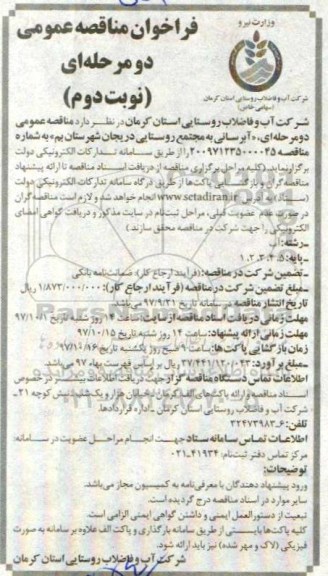 وزارت نیرو
شرکت آب و فاضلاب روستایی استان کرمان
(سهامی خاص)
فراخوان مناقصه عمومی
دو مرحله‌ای
(نوبت دوم)
شرکت آب و فاضلاب روستایی استان کرمان در نظر دارد مناقصه عمومی
دو مرحله‌ای، «آبرسانی به مجتمع روستایی دریجان شهرستان بم» به شماره
مناقصه ۲۰۰۹۷۱۲۳۵۰۰۰۰۴۵ را از طریق سامانه تدارکات الکترونیکی دولت
برگزار نماید. (کلیه مراحل برگزاری مناقصه از دریافت اسناد مناقصه تا ارائه پیشنهاد
مناقصه گران و بازگشایی پاکت‌ها از طریق درگاه سامانه تدارکات الکترونیکی دولت
(ستاد) به آدرس www.setadiran.ir انجام خواهد شد و لازم است مناقصه گران
در صورت عدم عضویت قبلی، مراحل ثبت‌نام در سایت مذکور و دریافت گواهی امضای
الکترونیکی را جهت شرکت در مناقصه محقق سازند.)
ـ رشته: آب
ـ پایه: ۵، ۴، ۳، ۲، ۱
ـ تضمین شرکت در مناقصه: (فرآیند ارجاع کار): ضمانت‌نامه بانکی
ـ مبلغ تضمین شرکت در مناقصه (فرآیند ارجاع کار): ۱/۸۷۳/۰۰۰/۰۰۰ ریال
تاریخ انتشار مناقصه در سامانه تاریخ ۹۷/۹/۲۱ می‌باشد.
مهلت زمانی دریافت اسناد مناقصه از سایت: ساعت ۱۴ روز شنبه تاریخ ۹۷/۱۰/۰۱
مهلت زمانی ارائه پیشنهاد: ساعت ۱۴ روز شنبه تاریخ ۹۷/۱۰/۱۵
زمان بازگشایی پاکت‌ها: ساعت ۹ صبح روز یکشنبه تاریخ ۹۷/۱۰/۱۶
ـ مبلغ برآورد: ریال بر اساس فهرست بهاء ۹۷ می‌باشد.
اطلاعات تماس دستگاه مناقصه گزار جهت دریافت اطلاعات بیشتر در خصوص
اسناد مناقصه و ارائه پاکت‌های الف: کرمان، خیابان هزار و یک شب، نبش کوچه ۲۱ ـ
شرکت آب و فاضلاب روستایی استان کرمان ـ اداره قراردادها.
تلفن: ۶ـ۳۲۴۷۳۹۸۳
اطلاعات تماس سامانه ستاد جهت انجام مراحل عضویت در سامانه:
مرکز تماس دفتر ثبت‌نام: ۴۱۹۳۴ـ۰۲۱
توضیحات:
ورود پیشنهاد دهندگان با معرفی‌نامه به کمیسیون مجاز می‌باشد.
سایر موارد در اسناد مناقصه درج گردیده است.
تبعیت از دستورالعمل ایمنی و داشتن گواهی ایمنی الزامی است.
کلیه پاکت‌ها بایستی از طریق سامانه بارگذاری و پاکت الف علاوه بر سامانه به صورت
فیزیکی (لاک و مهر شده) نیز باید ارائه شود.
شرکت آب و فاضلاب روستایی استان کرمان